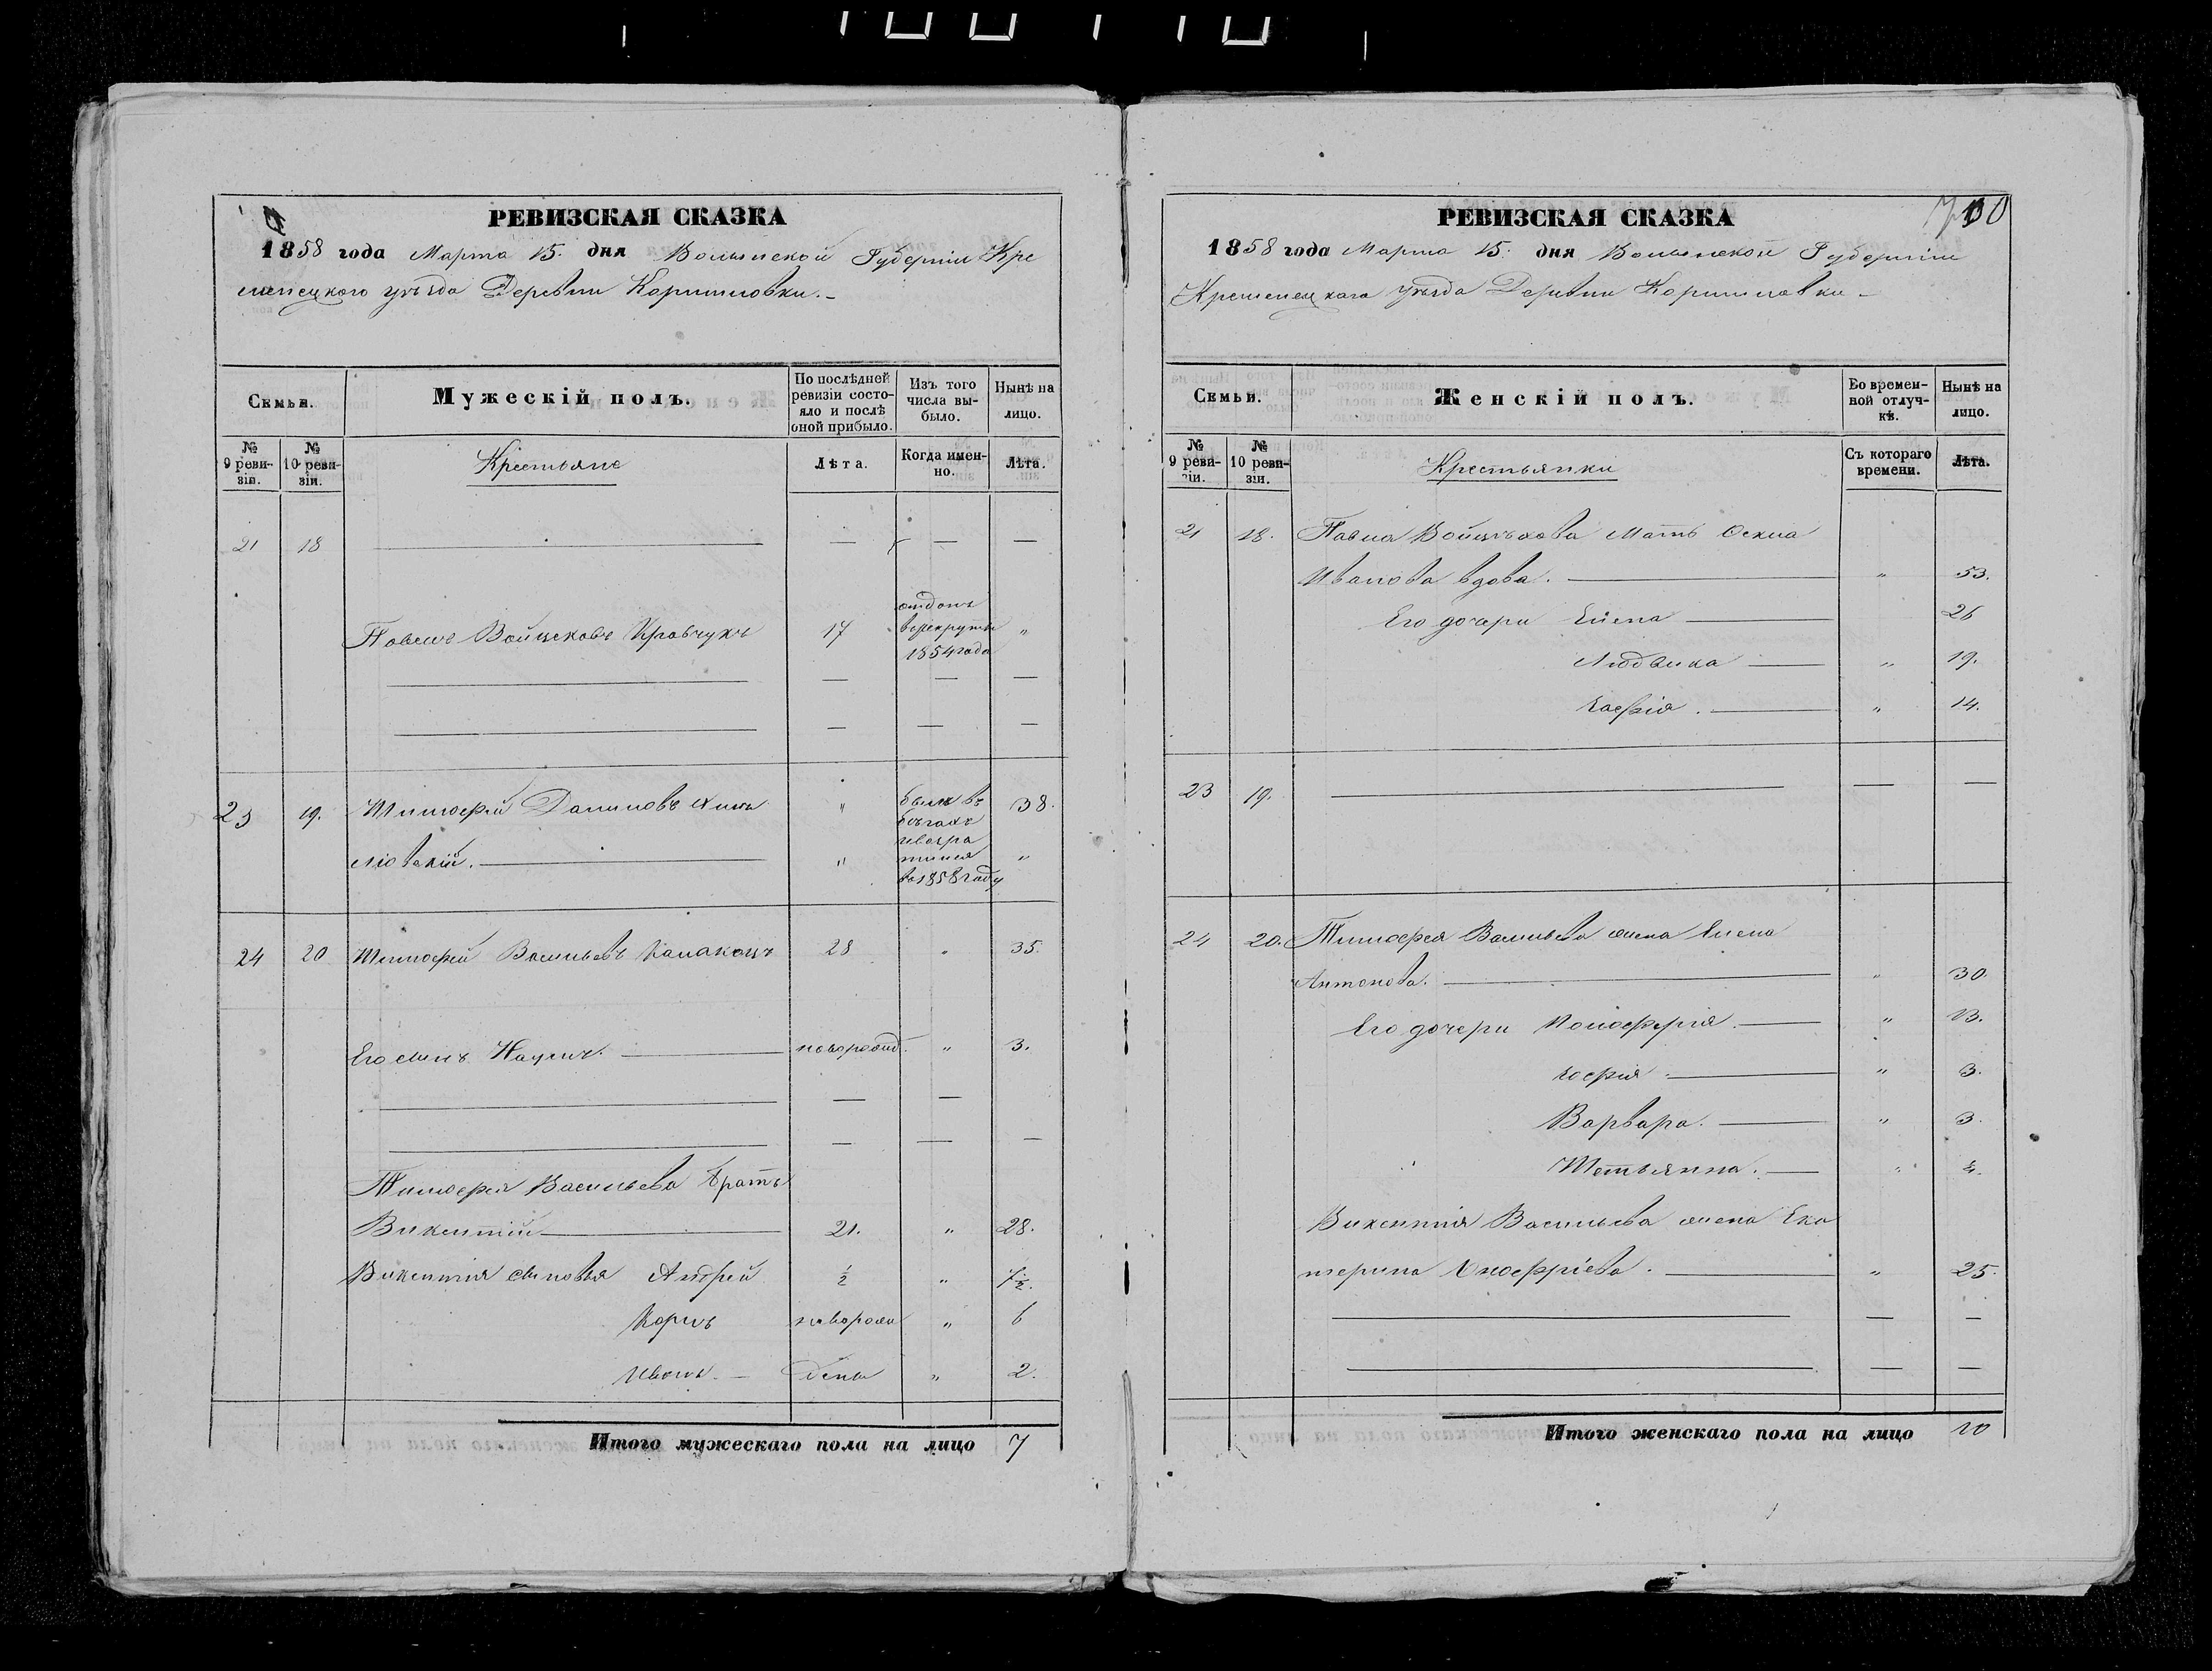 РЕВИЗСКАЯ СКАЗКА
1858 года Марта 15. дня Волынской Губерніи Кре
менецкого уѣзда Деревни
Семьи.
Мужескій полъ.
По послѣдней ревизіи состояло и послѣ оной прибыло.
Изъ того числа выбыло.
Нынѣ на лицо.
№ 9 ревизіи.
№ 10 ревизіи.
Крестьяне
Лѣта.
Когда именно.
Лѣта.
21 18 — — —
Павелъ Войцеховъ Кравчукъ 17 отданъ в рекруты 1854 года "
23 19. Тимофей Даниловъ " былъ въ бѣгахъ 38.
" возвратился во 1858 году "
24 20 Тимофей Васильевъ 28 " 35.
Его сынъ новорожд. " 3.
Тимофея Васильева братъ
Викентій 21. " 28.
Викентія сыновья Андрей ½ " 7½.
Карлъ новорожд " 6
Иванъ. — " 2.
Итого мужескаго пола на лицо 7
РЕВИЗСКАЯ СКАЗКА
130
1858 года Марта 15. дня Волынской Губерніи
Кременецкаго уѣзда Деревни
Семьи.
Женскій полъ.
Во временной отлучкѣ.
Нынѣ на лицо.
№ 9 ревизіи.
№ 10 ревизіи.
Крестьянки
Съ котораго времени.
Лѣта.
21 18. Павла Войцѣхова Мать
Иванова вдова. " 53.
Его дочери Елена 26
Людвика " 19.
" 14.
23 19. — —
24 20. Тимофея Васильева жена Елена
Антонова. " 30.
Его дочери " 13.
Зофия " 3.
Варвара. " 3.
Тетьянна. "
Викентия Васильева жена Ека
терина Оноффріева. " 25.
Итого женскаго пола на лицо 10